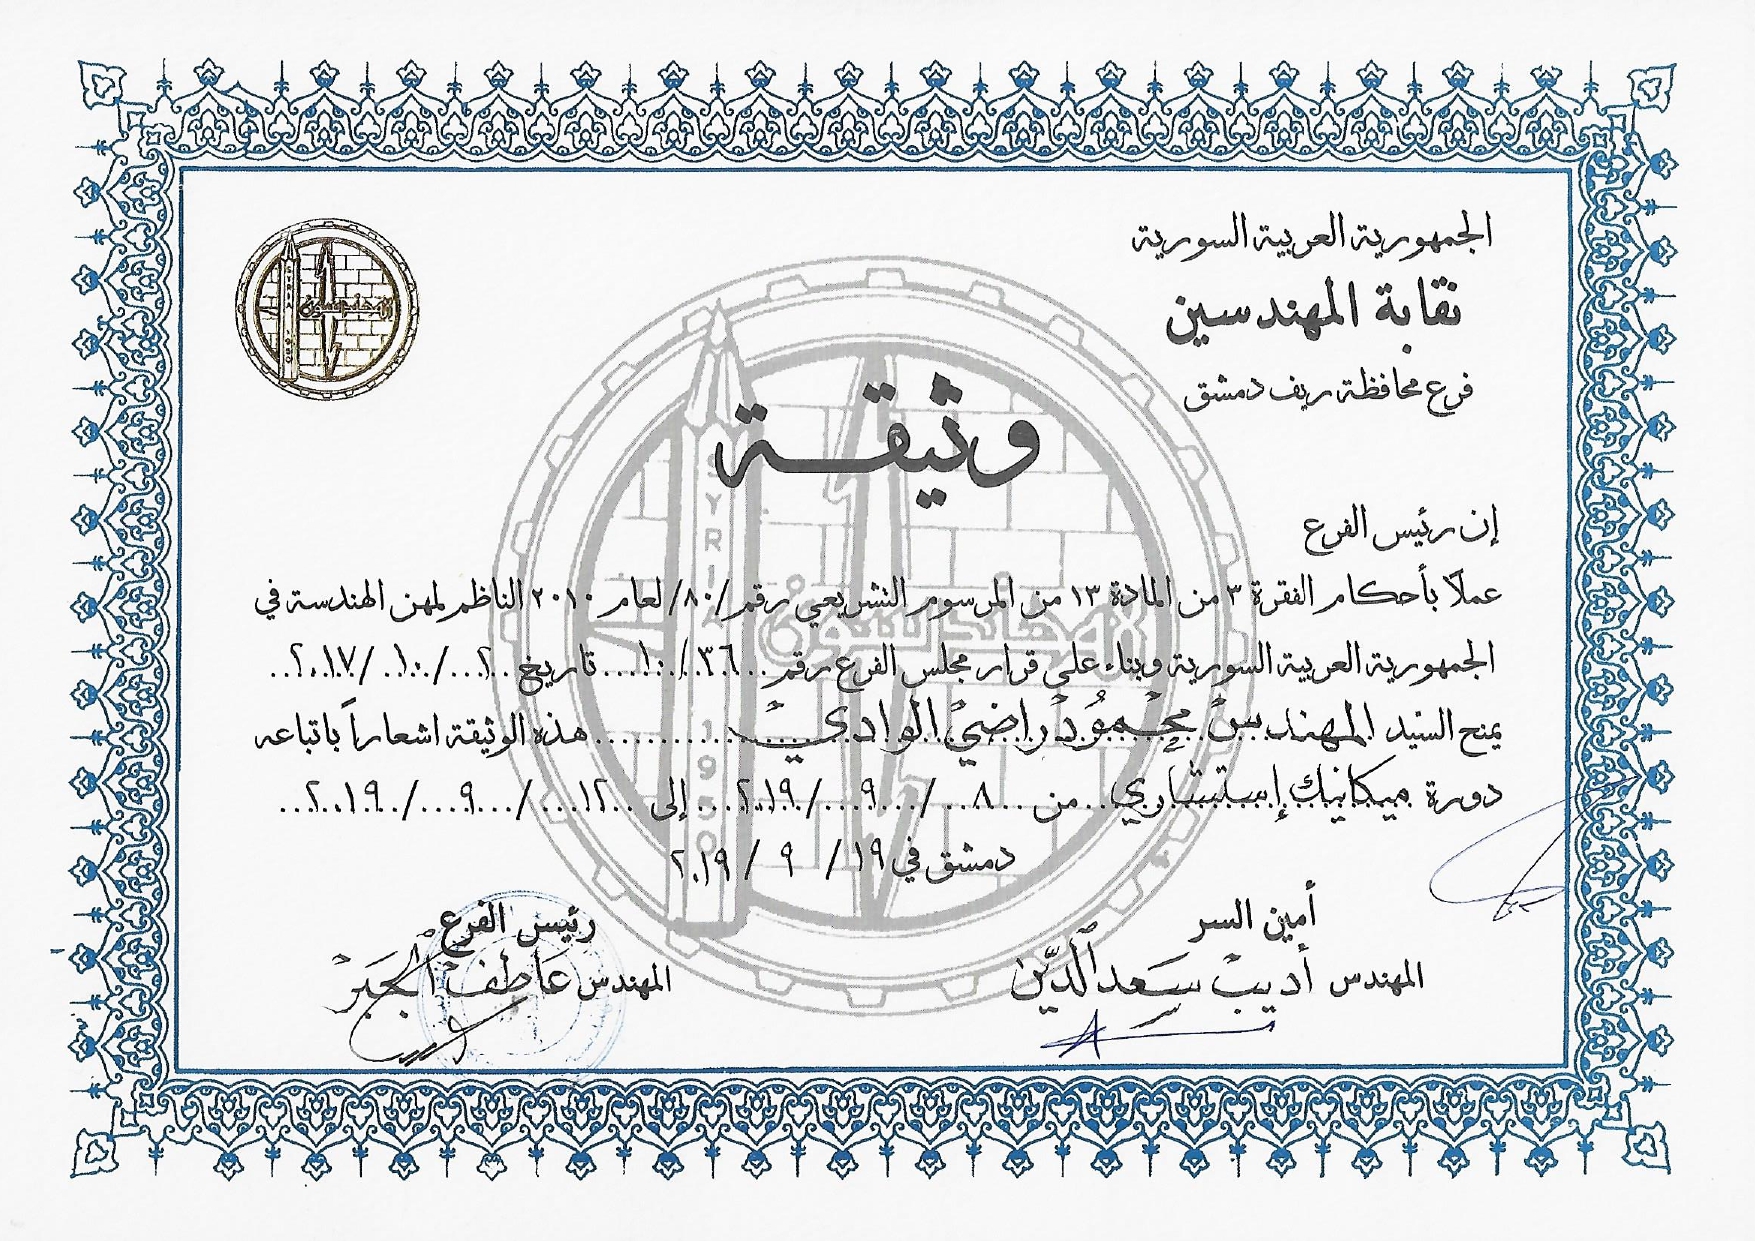 الجمهورية العربية السورية
نقابة المهندسين
فرع محافظة ريف دمشق
وثيقة
إن رئيس الفرع
عملاً بأحكام الفقرة ٣ من المادة ١٣ من المرسوم التشريعي رقم /٨٠/ لعام ٢٠١٠ الناظم لمهن الهندسة في
الجمهورية العربية السورية وبناء على قرار مجلس الفرع رقم ...١٠/٣٦... تاريخ ..٢../..١٠../٢٠١٧..
يمنح السيد المهندس محمود راضي الوادي ........ هذه الوثيقة اشعاراً باتباعه
دورة ميكانيك إستشاري.. من ...٨.../...٩.../٢٠١٩... إلى ...١٢.../...٩.../...٢٠١٩..
دمشق في ١٩ / ٩ / ٢٠١٩
أمين السر
المهندس أديب سعد الدين
رئيس الفرع
المهندس عاطف الجبر
SYRIA 1950
المهندسون
SYRIA 1950
المهندسون